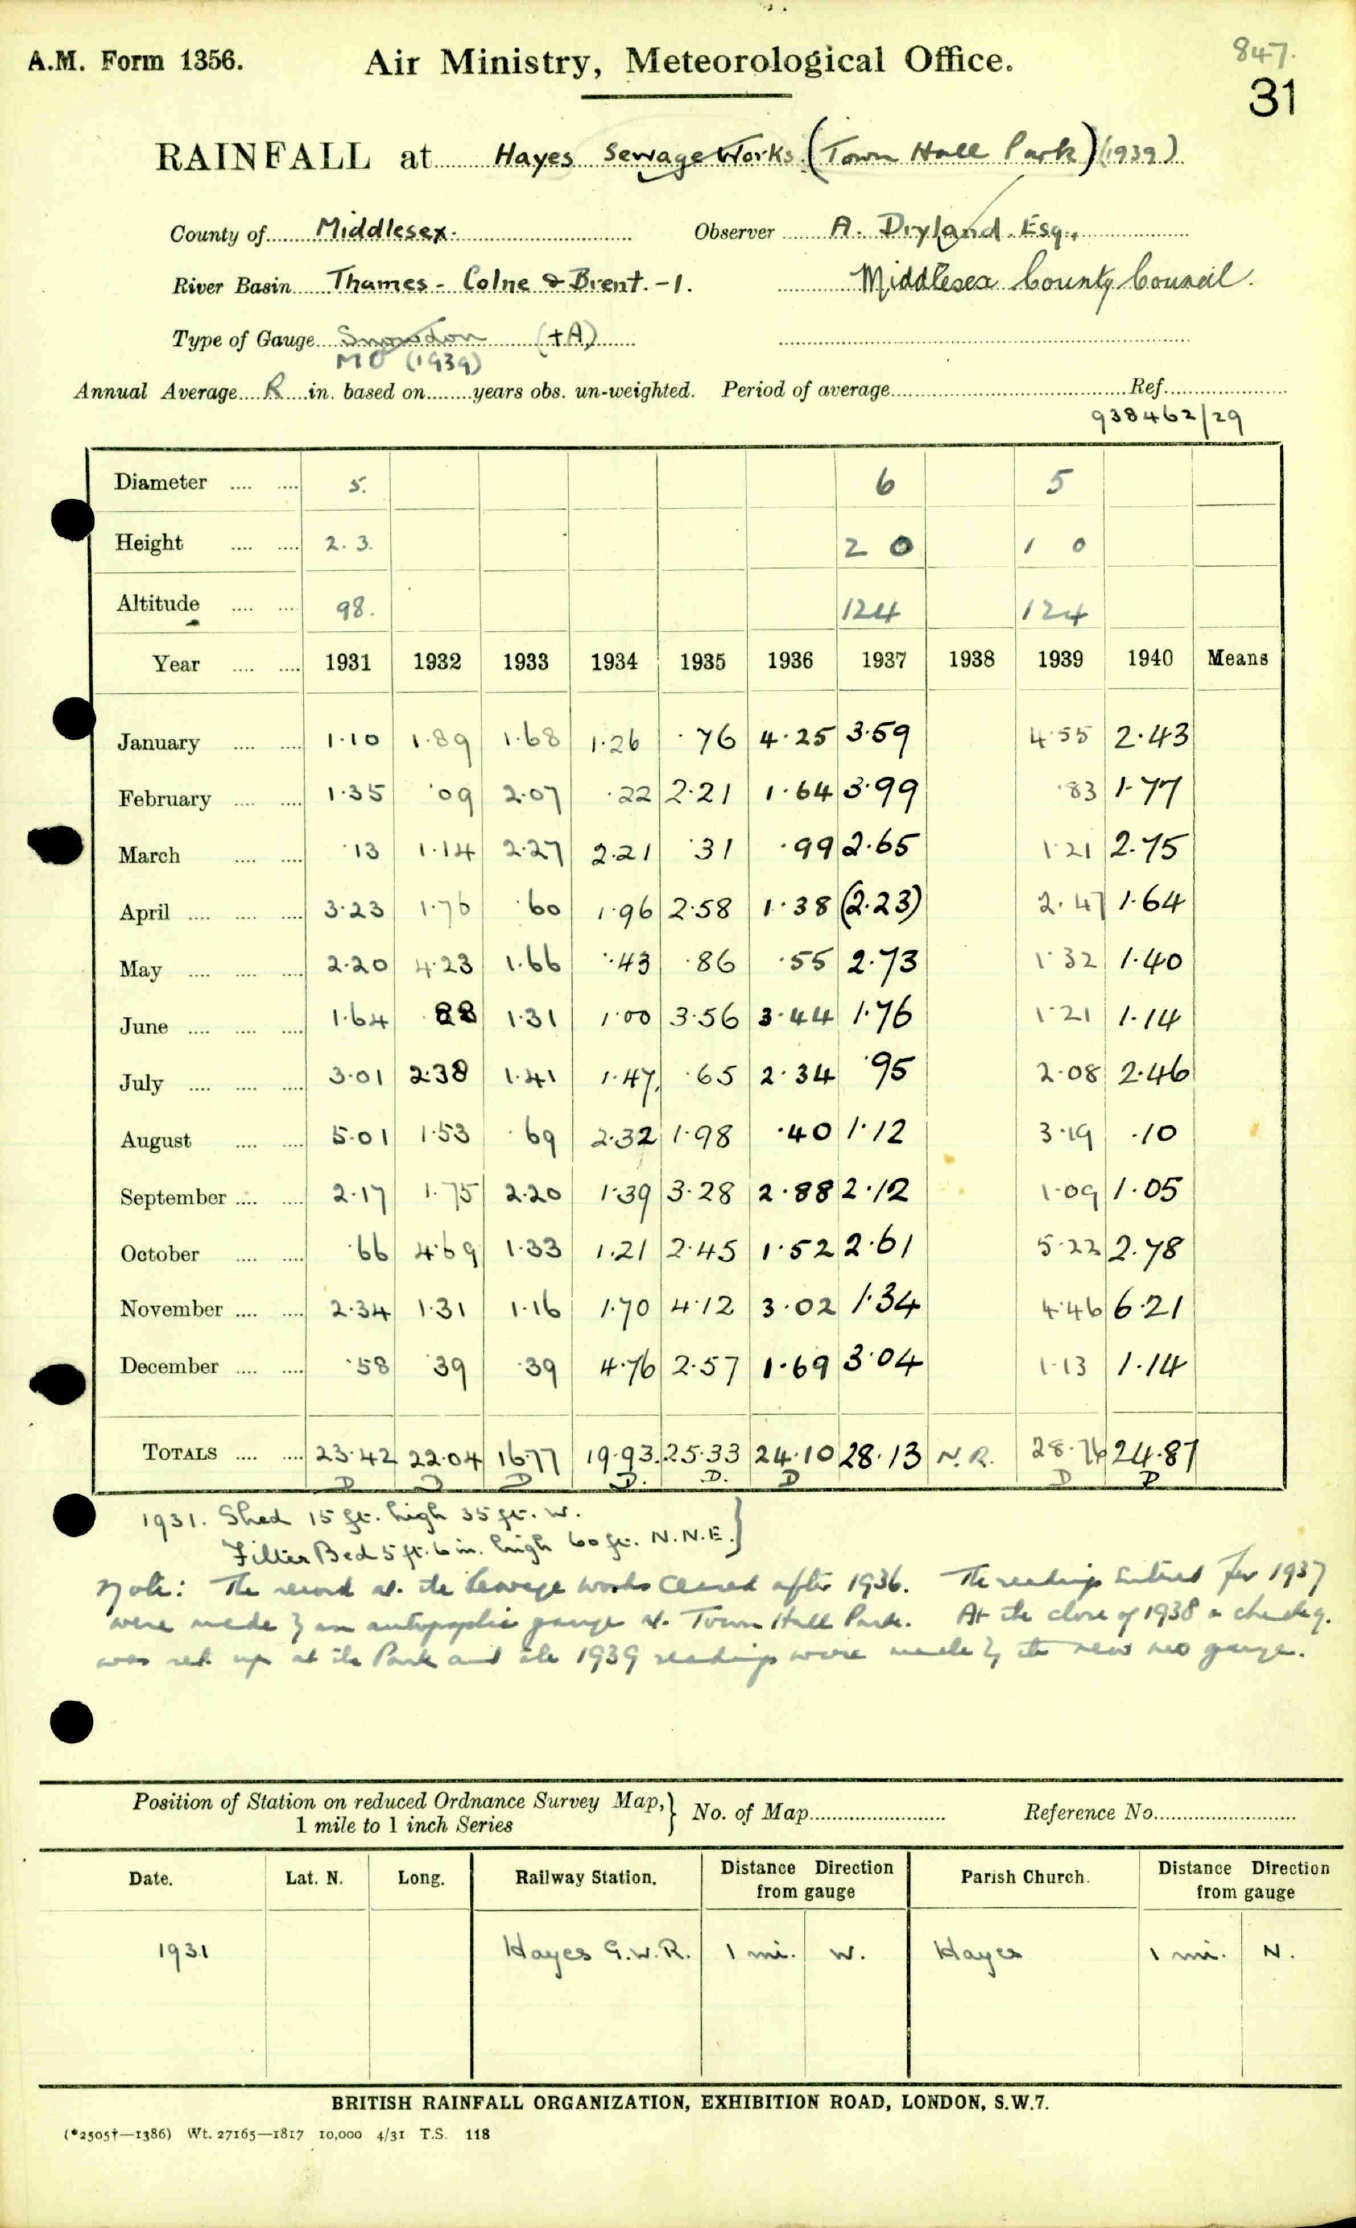 A.M. Form 1356.
Air Ministry, Meteorological Office.
847.
31
RAINFALL at Hayes Sewage Works (Town Hall Park) (1939)
County of Middlesex. Observer A. Dryland Esq.,
River Basin Thames - Colne & Brent. - 1. Middlesex County Council.
Type of Gauge Snowdon (+A)
MO (1939)
Annual Average R in. based on years obs. un-weighted. Period of average Ref.
938462/29
Diameter 5. 6 5
Height 2. 3. 2 0 1 0
Altitude 98. 124 124
Year 1931 1932 1933 1934 1935 1936 1937 1938 1939 1940 Means
January 1·10 1·89 1·68 1·26 ·76 4·25 3·59 4·55 2·43
February 1·35 ·09 2·07 ·22 2·21 1·64 3·99 ·83 1·77
March ·13 1·14 2·27 2·21 ·31 ·99 2·65 1·21 2·75
April 3·23 1·76 ·60 1·96 2·58 1·38 (2·23) 2·47 1·64
May 2·20 4·23 1·66 ·43 ·86 ·55 2·73 1·32 1·40
June 1·64 ·88 1·31 1·00 3·56 3·44 1·76 1·21 1·14
July 3·01 2·38 1·41 1·47 ·65 2·34 ·95 2·08 2·46
August 5·01 1·53 ·69 2·32 1·98 ·40 1·12 3·19 ·10
September 2·17 1·75 2·20 1·39 3·28 2·88 2·12 1·09 1·05
October ·66 4·69 1·33 1·21 2·45 1·52 2·61 5·22 2·78
November 2·34 1·31 1·16 1·70 4·12 3·02 1·34 4·46 6·21
December ·58 ·39 ·39 4·76 2·57 1·69 3·04 1·13 1·14
TOTALS 23·42 22·04 16·77 19·93 25·33 24·10 28·13 N.R. 28·76 24·87
D D D D. D. D D D
1931. Shed 15 ft. high 35 ft. W.
Filter Bed 5 ft. 6 in. high 60 ft. N.N.E.}
Note: The record at the Sewage Works ceased after 1936. The readings entered for 1937
were made by an autographic gauge at Town Hall Park. At the close of 1938 a check g.
was set up at the Park and the 1939 readings were made by the new MO gauge.
Position of Station on reduced Ordnance Survey Map,} No. of Map Reference No.
1 mile to 1 inch Series
Date. Lat. N. Long. Railway Station. Distance Direction from gauge Parish Church. Distance Direction from gauge
1931 Hayes G.W.R. 1 mi. W. Hayes 1 mi. N.
BRITISH RAINFALL ORGANIZATION, EXHIBITION ROAD, LONDON, S.W.7.
(*2505†—1386) Wt. 27165—1817 10,000 4/31 T.S. 118